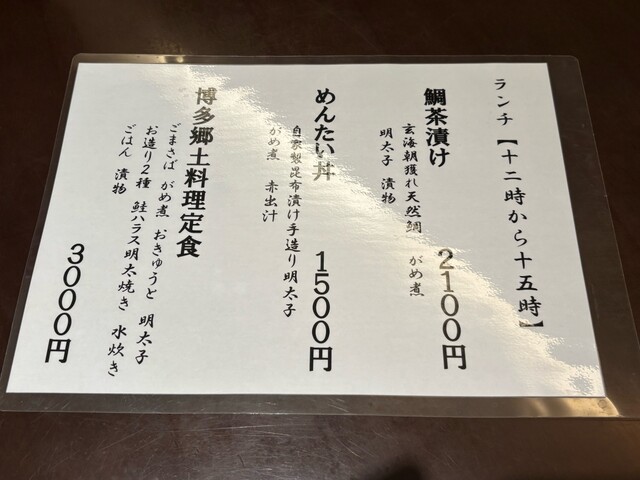 ランチ【十二時から十五時】
鯛茶漬け 2100円
玄海朝獲れ天然鯛 がめ煮
明太子 漬物
めんたい丼 1500円
自家製昆布漬け手造り明太子
がめ煮 赤出汁
博多郷土料理定食
ごまさば がめ煮 おきゅうと 明太子
お造り2種 鮭ハラス明太焼き 水炊き
ごはん 漬物
3000円